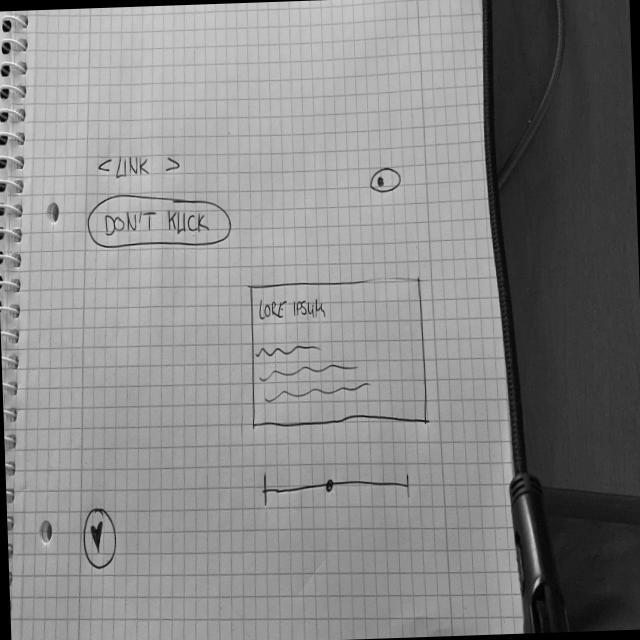 <LINK >
DON'T KLICK
LORE IPSUM